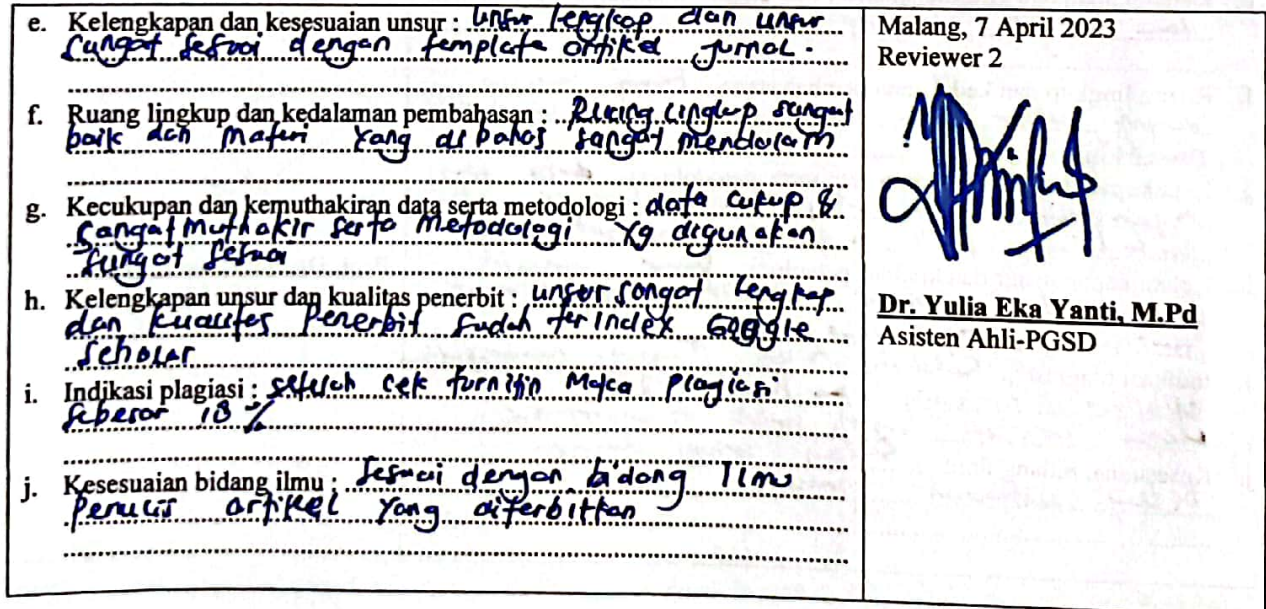 e. Kelengkapan dan kesesuaian unsur : unsur lengkap dan unsur
sangat sesuai dengan template artikel jurnal.
f. Ruang lingkup dan kedalaman pembahasan : Ruang Lingkup sangat
baik dan materi yang di bahas sangat mendalam
g. Kecukupan dan kemuthakiran data serta metodologi : data cukup &
sangat muthakir serta Metodologi yg digunakan
sangat sesuai
h. Kelengkapan unsur dan kualitas penerbit : unsur sangat lengkap
dan kualitas Penerbit sudah terindex Google
Scholar
i. Indikasi plagiasi : setelah cek turnitin Maka Plagiasi
sebesar 18 %
j. Kesesuaian bidang ilmu : Sesuai dengan bidang Ilmu
Penulis artikel yang diterbitkan
Malang, 7 April 2023
Reviewer 2
Dr. Yulia Eka Yanti, M.Pd
Asisten Ahli-PGSD